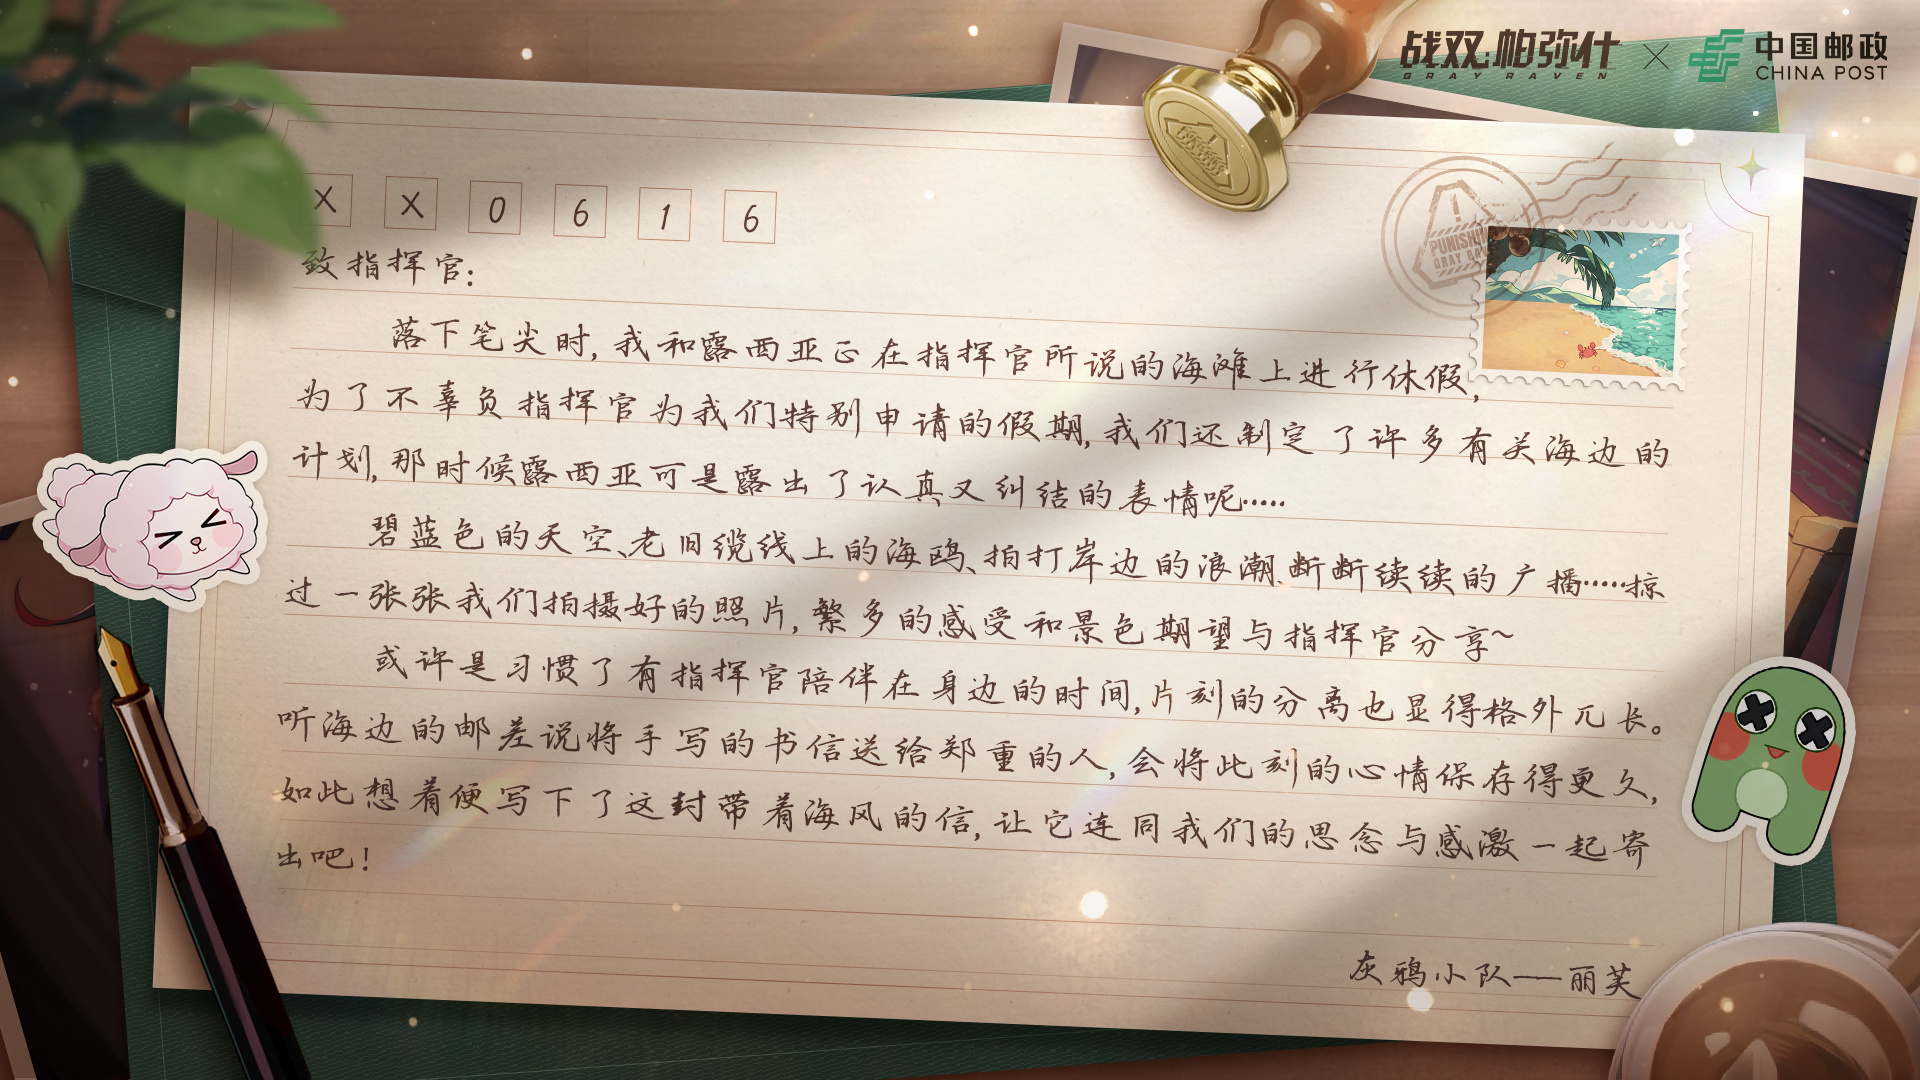 战双:帕弥什
GRAY RAVEN
中国邮政
CHINA POST
XX0616
致指挥官:
落下笔尖时,我和露西亚正在指挥官所说的海滩上进行休假,
为了不辜负指挥官为我们特别申请的假期,我们还制定了许多有关海边的
计划,那时候露西亚可是露出了认真又纠结的表情呢……
碧蓝色的天空、老旧缆线上的海鸥、拍打岸边的浪潮、断断续续的广播……掠
过一张张我们拍摄好的照片,繁多的感受和景色期望与指挥官分享~
或许是习惯了有指挥官陪伴在身边的时间,片刻的分离也显得格外冗长。
听海边的邮差说将手写的书信送给郑重的人,会将此刻的心情保存得更久,
如此想着便写下了这封带着海风的信,让它连同我们的思念与感激一起寄
出吧!
灰鸦小队——丽芙
PUNISHIN
GRAY